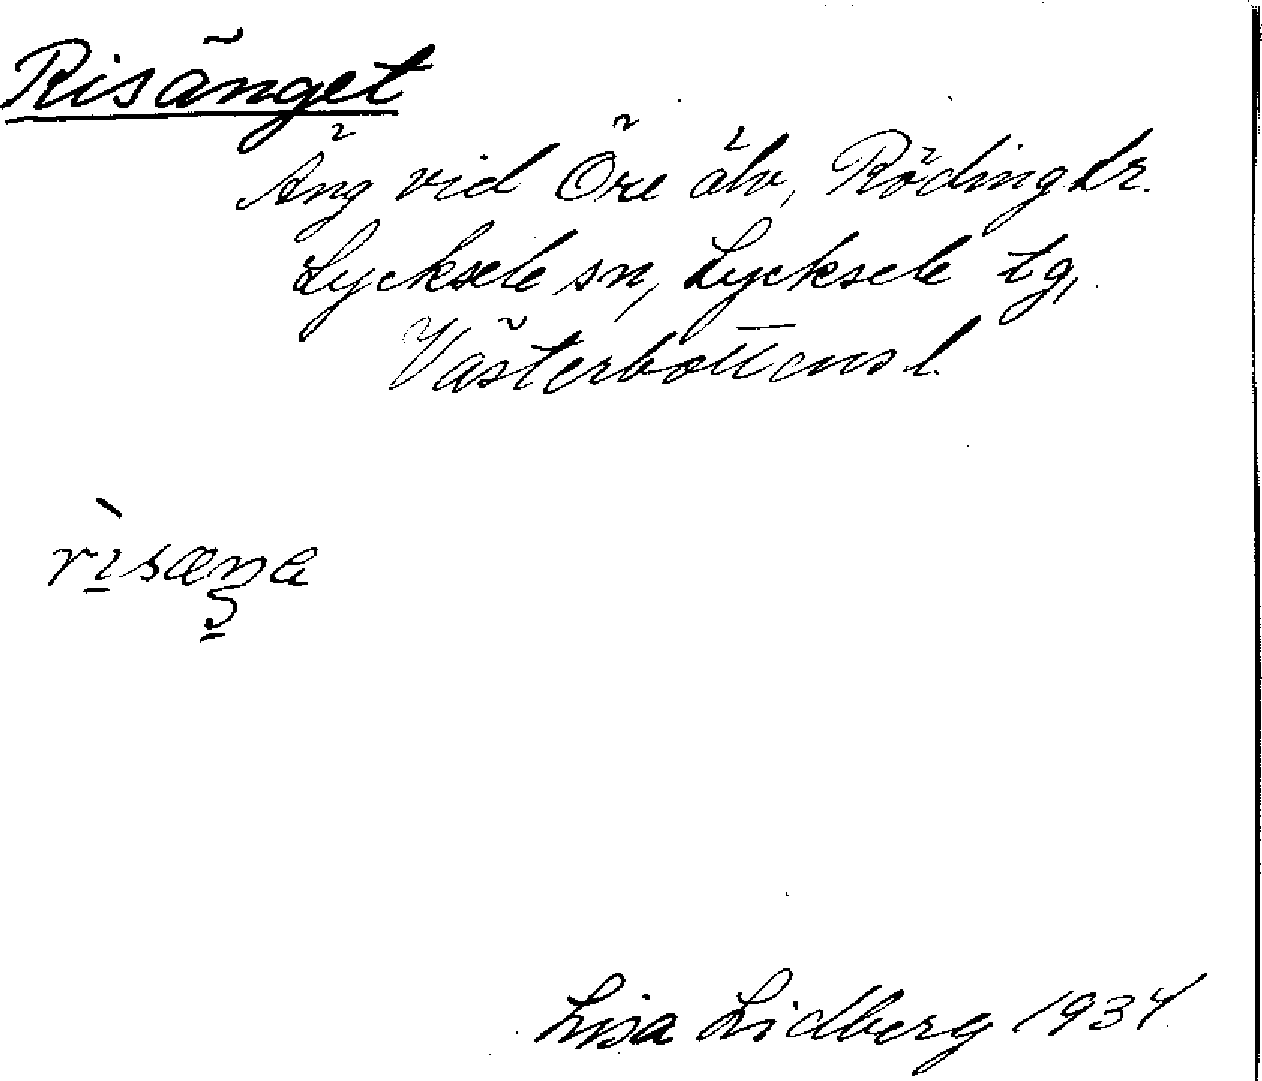 Risänget
Äng vid Öre älv, Rödingtr.
Lycksele sn, Lycksele tg,
Västerbottens l.
rı̀sæŋe
Lisa Lidberg 1934